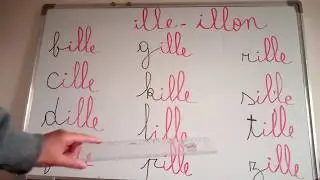 ille - illon
bille gille rille
cille kille sille
dille lille tille
pille zille